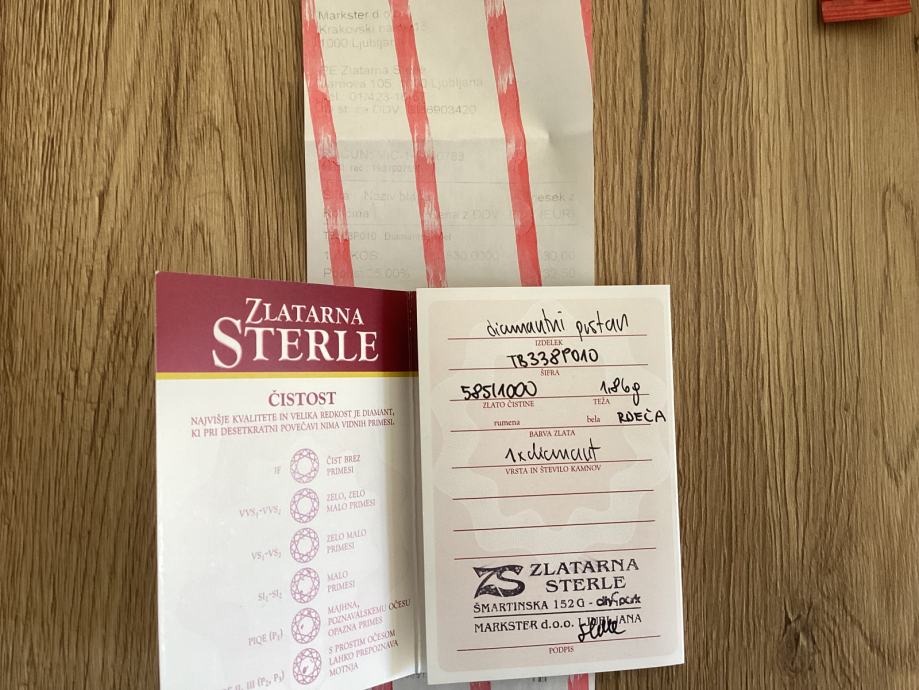 Markster d.o.o.
Krakovski
1000 Ljubljana
PE Zlatarna Sterle
105, Ljubljana
Tel.: 01/423-
DDV:
Naziv
Količina Cena z DDV (EUR)
TB338P010 Diamantni
1 KOS
25.00%
ZLATARNA
STERLE
ČISTOST
NAJVIŠJE KVALITETE IN VELIKA REDKOST JE DIAMANT,
KI PRI DESETKRATNI POVEČAVI NIMA VIDNIH PRIMESI.
IF ČIST BREZ
PRIMESI
VVS1-VVS2 ZELO, ZELO
MALO PRIMESI
VS1-VS2 ZELO MALO
PRIMESI
SI1-SI2 MALO
PRIMESI
PIQE (P1) MAJHNA,
POZNAVALSKEMU OČESU
OPAZNA PRIMES
II, III (P2, P3) S PROSTIM OČESOM
LAHKO PREPOZNAVA
MOTNJA
diamantni prstan
IZDELEK
TB338P010
ŠIFRA
585/1000 1,86g
ZLATO ČISTINE TEŽA
rumena bela RDEČA
BARVA ZLATA
1x diamant
VRSTA IN ŠTEVILO KAMNOV
ZS ZLATARNA
STERLE
ŠMARTINSKA 152G - citypark
MARKSTER d.o.o. LJUBLJANA
PODPIS